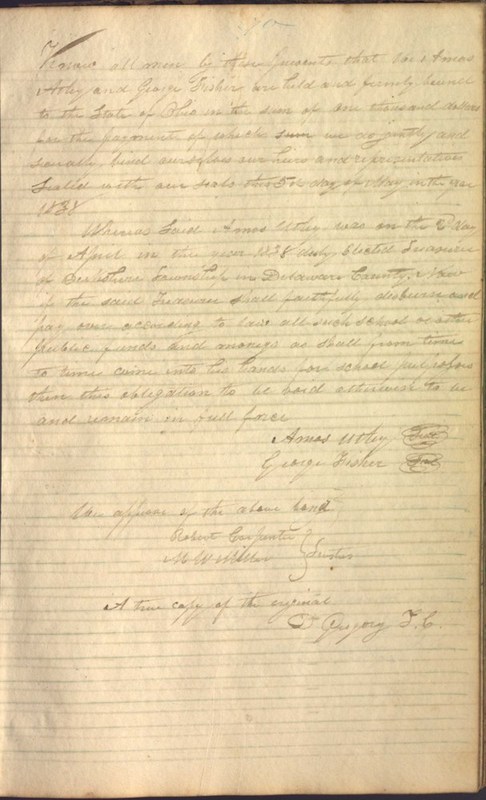 70
Know all men by these presents that We Amos
Utley and George Fisher are held and firmly bound
to the State of Ohio in the sum of one thousand dollars
for the payment of which sum we do jointly and
severally bind ourselves our heirs and representatives
Sealed with our seals this 5th day of May in the year
1838
Whereas Said Amos Utley was on the 2 day
of April in the year 1838 duly Elected Treasurer
of Berkshire Township in Delaware County, Now
if the said Treasurer shall faithfully disburse and
pay over according to law all such school or other
public funds and moneys as shall from time
to time come into his hands for school purposes
then this obligation to be void otherwise to be
and remain in full force
Amos Utley Seal
George Fisher Seal
We approve of the above bond
Robert Carpenter
Trustees
A true copy of the original
D Gregory T.C.